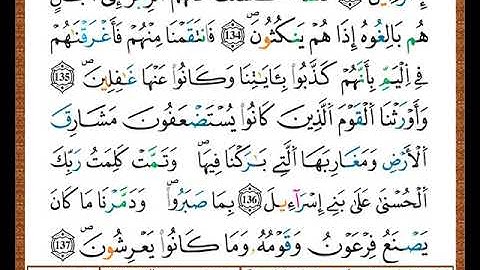 هُم بَالِغُوهُ إِذَا هُمْ يَنكُثُونَ ۖ 134 فَانتَقَمْنَا مِنْهُمْ فَأَغْرَقْنَٰهُمْ
فِي الْيَمِّ بِأَنَّهُمْ كَذَّبُوا بِـَٔايَٰتِنَا وَكَانُوا عَنْهَا غَٰفِلِينَ ۖ 135
وَأَوْرَثْنَا الْقَوْمَ الَّذِينَ كَانُوا يُسْتَضْعَفُونَ مَشَٰرِقَ
الْأَرْضِ وَمَغَٰرِبَهَا الَّتِي بَٰرَكْنَا فِيهَا ۖ وَتَمَّتْ كَلِمَتُ رَبِّكَ
الْحُسْنَىٰ عَلَىٰ بَنِي إِسْرَآءِيلَ 136 بِمَا صَبَرُوا ۖ وَدَمَّرْنَا مَا كَانَ
يَصْنَعُ فِرْعَوْنُ وَقَوْمُهُ وَمَا كَانُوا يَعْرِشُونَ ۖ 137